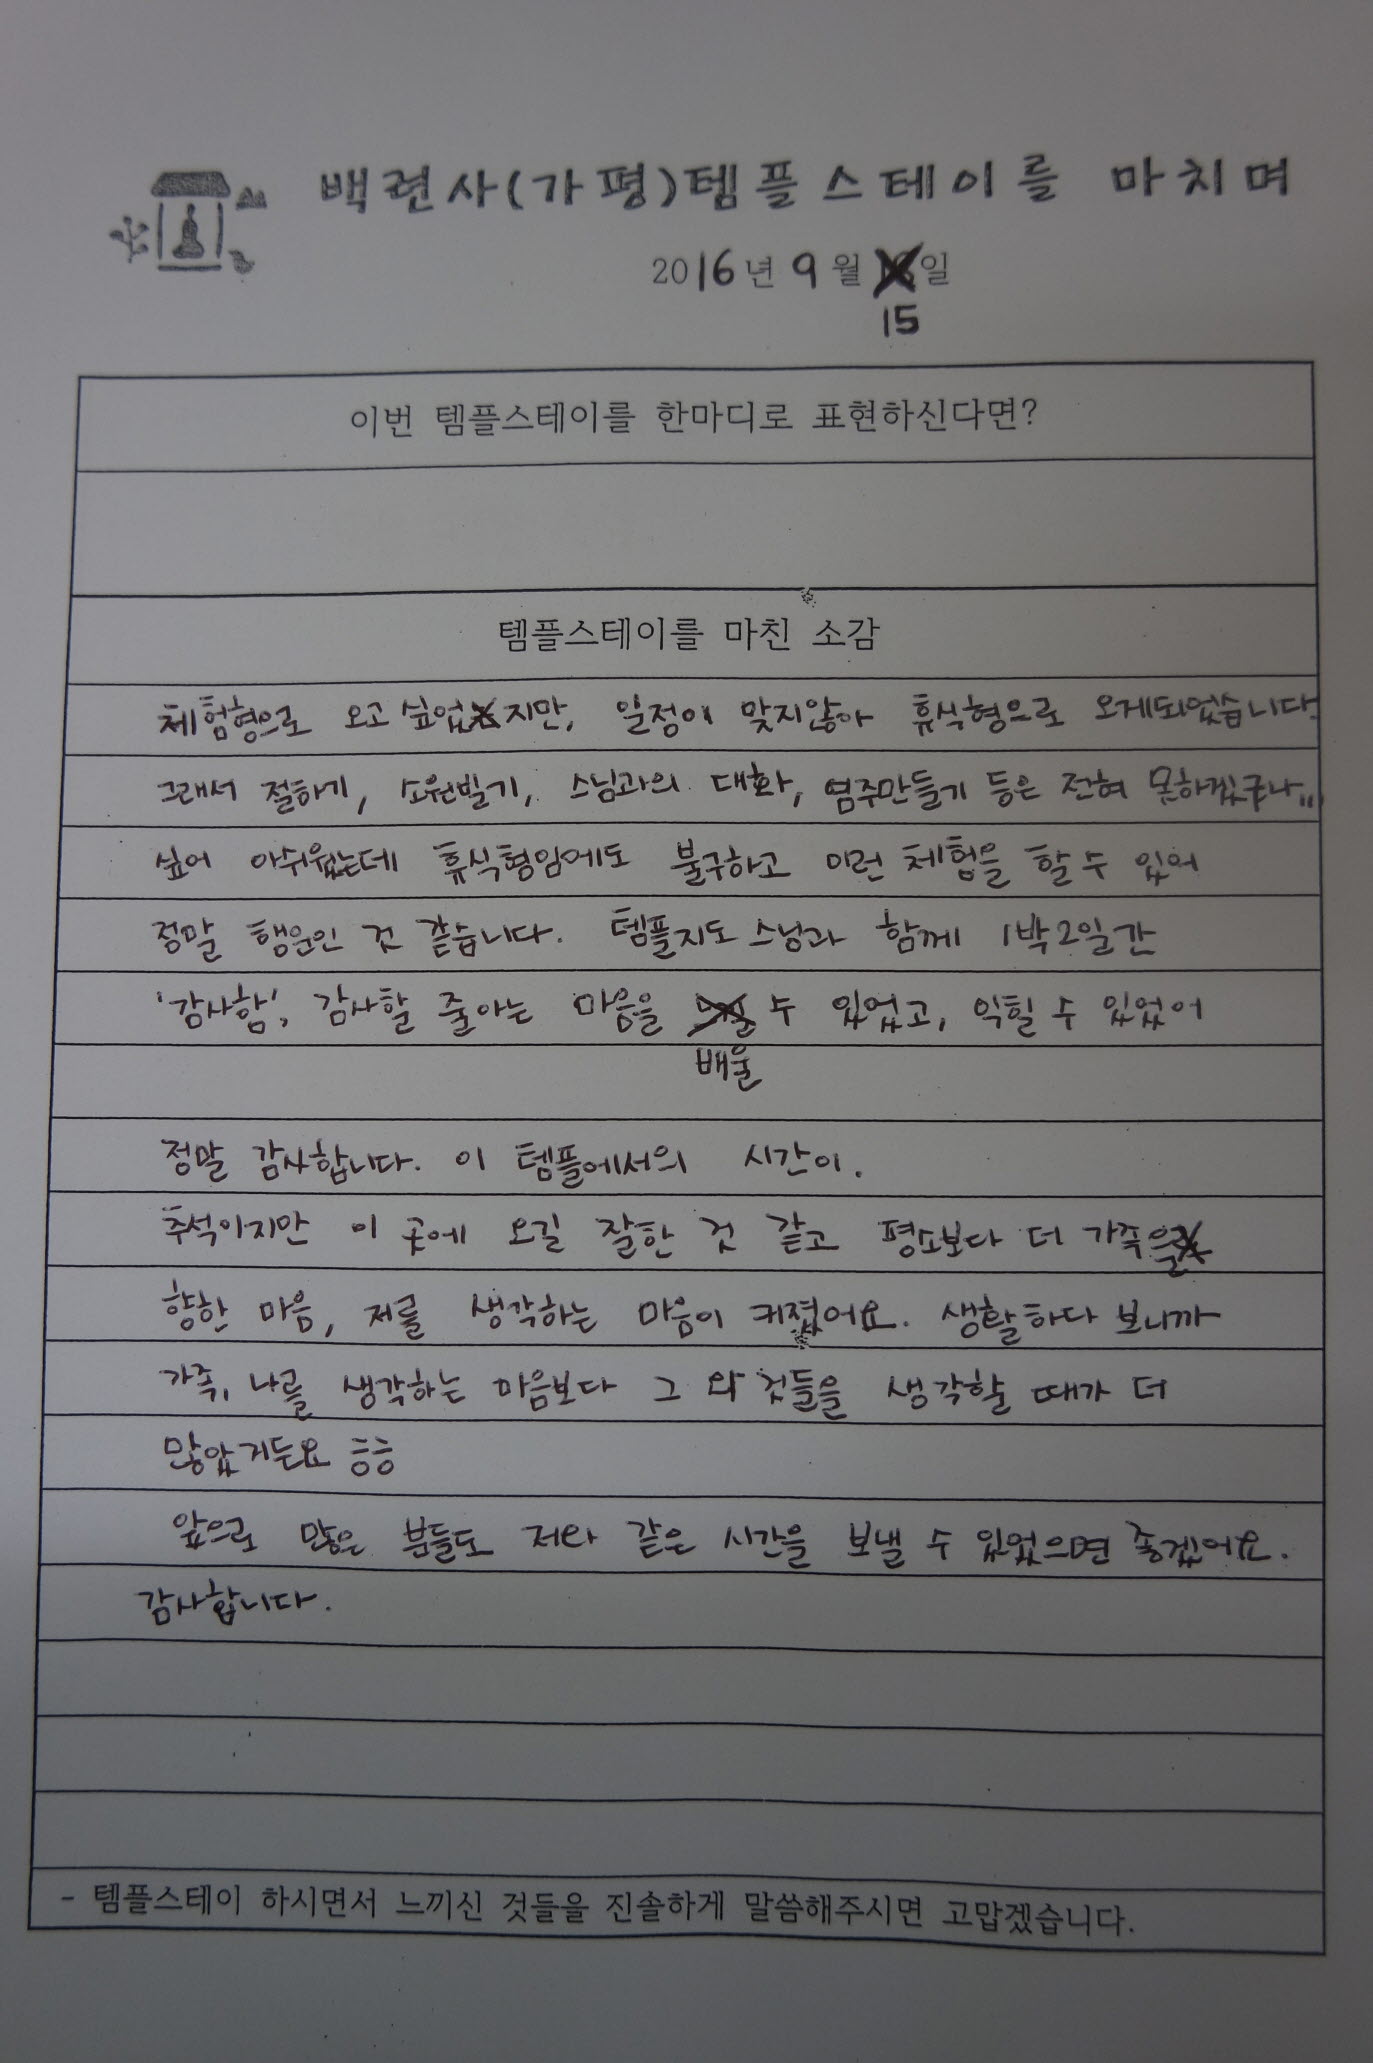 백련사(가평)템플스테이를 마치며
2016년 9월 일
15
이번 템플스테이를 한마디로 표현하신다면?
템플스테이를 마친 소감
체험형으로 오고 싶었지만, 일정이 맞지않아 휴식형으로 오게되었습니다.
그래서 절하기, 소원빌기, 스님과의 대화, 염주만들기 등은 전혀 못하겠구나,,,
싶어 아쉬웠는데 휴식형임에도 불구하고 이런 체험을 할 수 있어
정말 행운인 것 같습니다. 템플지도 스님과 함께 1박2일간
'감사함', 감사할 줄아는 마음을 수 있었고, 익힐 수 있었어
배울
정말 감사합니다. 이 템플에서의 시간이.
추석이지만 이 곳에 오길 잘한 것 같고 평소보다 더 가족을
향한 마음, 저를 생각하는 마음이 커졌어요. 생활하다 보니까
가족, 나를 생각하는 마음보다 그 외 것들을 생각할 때가 더
많았거든요 흥흥
앞으로 많은 분들도 저와 같은 시간을 보낼 수 있었으면 좋겠어요.
감사합니다.
- 템플스테이 하시면서 느끼신 것들을 진솔하게 말씀해주시면 고맙겠습니다.